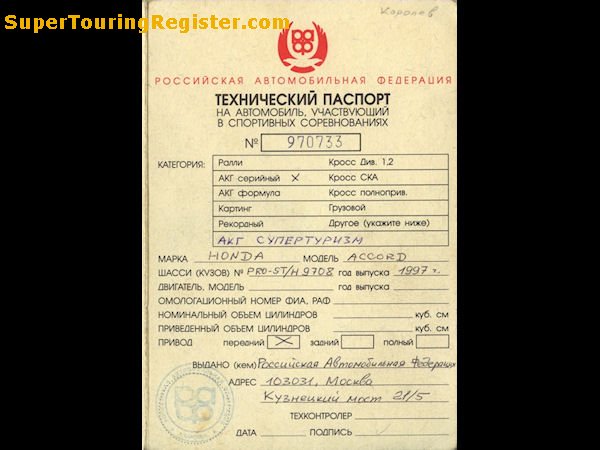 SuperTouringRegister.com
Королев
РОССИЙСКАЯ АВТОМОБИЛЬНАЯ ФЕДЕРАЦИЯ
ТЕХНИЧЕСКИЙ ПАСПОРТ
НА АВТОМОБИЛЬ, УЧАСТВУЮЩИЙ
В СПОРТИВНЫХ СОРЕВНОВАНИЯХ
№ 970733
КАТЕГОРИЯ: Ралли Кросс Див. 1,2
АКГ серийный X Кросс СКА
АКГ формула Кросс полноприв.
Картинг Грузовой
Рекордный Другое (укажите ниже)
АКГ СУПЕРТУРИЗМ
МАРКА HONDA МОДЕЛЬ ACCORD
ШАССИ (КУЗОВ) № PRO-ST/H9708 год выпуска 1997 г.
ДВИГАТЕЛЬ, МОДЕЛЬ год выпуска
ОМОЛОГАЦИОННЫЙ НОМЕР ФИА, РАФ
НОМИНАЛЬНЫЙ ОБЪЕМ ЦИЛИНДРОВ куб. см
ПРИВЕДЕННЫЙ ОБЪЕМ ЦИЛИНДРОВ куб. см
ПРИВОД передний X задний полный
ВЫДАНО (кем) Российская Автомобильная Федерация
АДРЕС 103031, Москва
Кузнецкий мост 21/5
ТЕХКОНТРОЛЕР
ДАТА ПОДПИСЬ